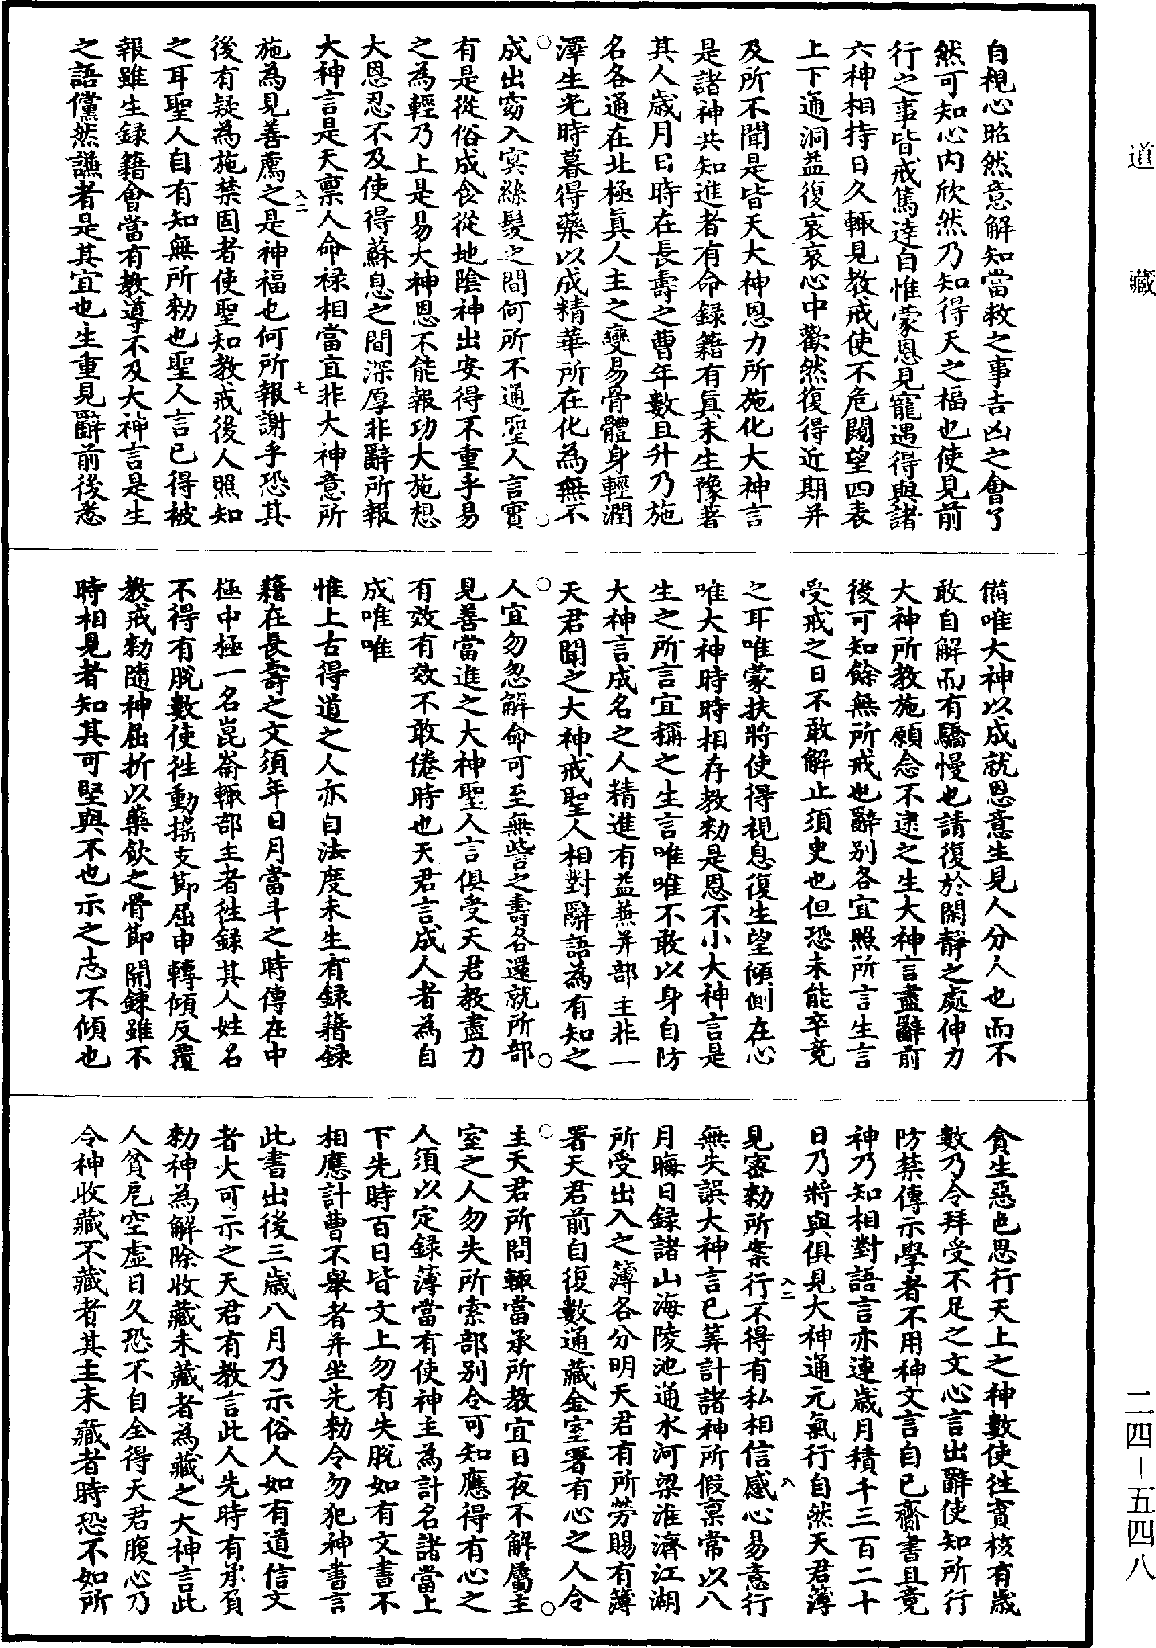 道藏
自視心昭然意解知當救之事吉凶之會了
然可知心內欣然乃知得天之福也使見前
行之事皆戒篤達自惟蒙恩見寵遇得與諸
六神相持日久輒見教戒使不危闕望四表
上下通洞益復哀哀心中歡然復得近期并
及所不聞是皆天大神恩力所施化大神言
是諸神共知進者有命錄籍有真未生豫著
其人歲月日時在長壽之曹年數且升乃施
名各通在北極真人主之變易骨體身輕潤
澤生光時暮得藥以成精華所在化為無不
成出窈入冥絲髮之間何所不通聖人言實
有是從俗成食從地陰神出安得不重乎易
之為輕乃上是易大神恩不能報功大施想
大恩忍不及使得蘇息之間深厚非辭所報
大神言是天稟人命祿相當宜非大神意所
施為見善薦之是神福也何所報謝乎恐其
後有疑為施禁固者使聖知教戒後人照知
之耳聖人自有知無所勑也聖人言已得被
報雖生錄籍會當有教導不及大神言是生
之語儻然謙者是其宜也生重見辭前後悉
入二
七
備唯大神以成就恩意生見人分人也而不
敢自解而有驕慢也請復於閑靜之處伸力
大神所教施願念不逮之生大神言盡辭前
後可知餘無所戒也辭別各宜照所言生言
受戒之日不敢解止須臾也但恐未能卒竟
之耳唯蒙扶將使得視息復生望傾側在心
唯大神時時相存教勑是恩不小大神言是
生之所言宜稱之生言唯唯不敢以身自防
大神言成名之人精進有益兼并部主非一
天君聞之大神戒聖人相對辭語為有知之
人宜勿忽解命可至無訾之壽各還就所部
見善當進之大神聖人言俱受天君教盡力
有效有效不敢倦時也天君言成人者為自
成唯唯
惟上古得道之人亦自法度未生有錄籍錄
籍在長壽之文須年日月當斗之時傳在中
極中極一名崑崙輒部主者往錄其人姓名
不得有脫數使往動搖支節屈申轉傾反覆
教戒勑隨神屈折以藥飲之骨節開鍊雖不
時相見者知其可堅與不也示之志不傾也
貪生惡色思行天上之神數使往實核有歲
數乃令拜受不足之文心言出辭使知所行
防禁傳示學者不用神文言自已齋書且竟
神乃知相對語言亦連歲月積千三百二十
日乃將與俱見大神通元氣行自然天君簿
見密勑所案行不得有私相信感心易意行
無失誤大神言已筭計諸神所假稟常以八
月晦日錄諸山海陵池通水河梁淮濟江湖
所受出入之簿各分明天君有所勞賜有簿
署天君前自復數通藏金室署有心之人令
主天君所問輒當承所教宜日夜不解屬主
室之人勿失所索部別令可知應得有心之
人須以定錄簿當有使神主為計名諸當上
下先時百日皆文上勿有失脫如有文書不
相應計曹不舉者并坐先勑令勿犯神書言
此書出後三歲八月乃示俗人如有道信文
者大可示之天君有教言此人先時有承負
勑神為解除收藏未藏者為藏之大神言此
人貧戹空虛日久恐不自全得天君腹心乃
令神收藏不藏者其主未藏者時恐不如所
入二
八
二四-五四八